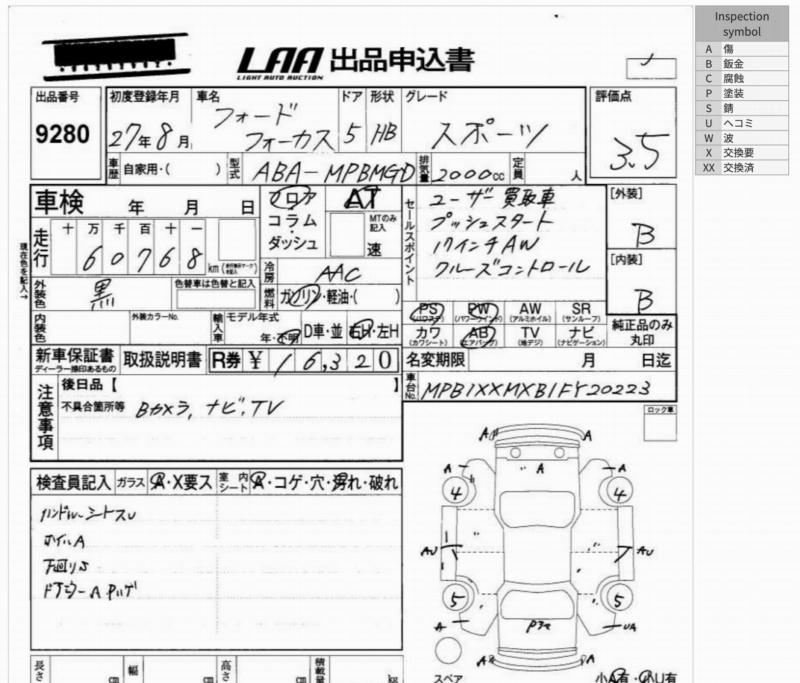 LAA 出品申込書
LIGHT AUTO AUCTION
Inspection symbol
A 傷
B 鈑金
C 腐蝕
P 塗装
S 錆
U ヘコミ
W 波
X 交換要
XX 交換済
出品番号 9280
初度登録年月 27年8月
車名 フォード フォーカス
ドア 5
形状 HB
グレード スポーツ
評価点 3.5
車歴 自家用・( )
型式 ABA-MPBMGD
排気量 2000cc
定員 人
車検 年 月 日
フロア コラム・ダッシュ
AT
MTのみ記入
速
セールスポイント
ユーザー買取車
プッシュスタート
17インチAW
クルーズコントロール
[外装] B
[内装] B
現在色を記入→
走行 十万千百十一
60768 km
冷房 AAC
外装色 黒
色替車は色替と記入
燃料 ガソリン・軽油・( )
内装色
外装カラーNo.
輸入車 モデル年式
年・不明
D車・並
右H・左H
PS (パワステ) PW (パワーウインド) AW (アルミホイル) SR (サンルーフ)
カワ (カワシート) AB (エアバッグ) TV (地デジ) ナビ (ナビゲーション)
純正品のみ丸印
新車保証書
ディーラー捺印あるもの
取扱説明書
R券 ¥ 16,320
名変期限 月 日迄
車台No. MPB1XXMXB1FY20223
注意事項
後日品【 】
不具合箇所等 Bカメラ,ナビ,TV
ロック車
検査員記入 ガラス A・X要ス 室内シート A・コゲ・穴・汚れ・破れ
ホイルA
下回りS
A A
A A A
4 4
AU AU
5 5
A UA
A A
スペア
小A有・小U有
長さ cm 幅 cm 高さ cm 積載量 kg